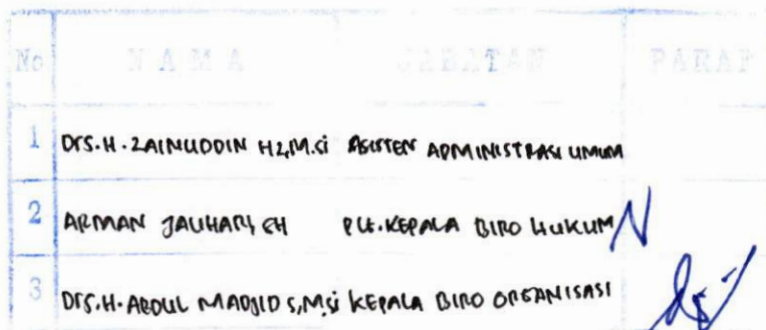 No NAMA JABATAN PARAF
1 Drs. H. ZAINUDDIN HZ, M.Si ASISTEN ADMINISTRASI UMUM
2 ARMAN JAUHARI, SH PLT. KEPALA BIRO HUKUM
3 Drs. H. ABDUL MADJID S, M.Si KEPALA BIRO ORGANISASI